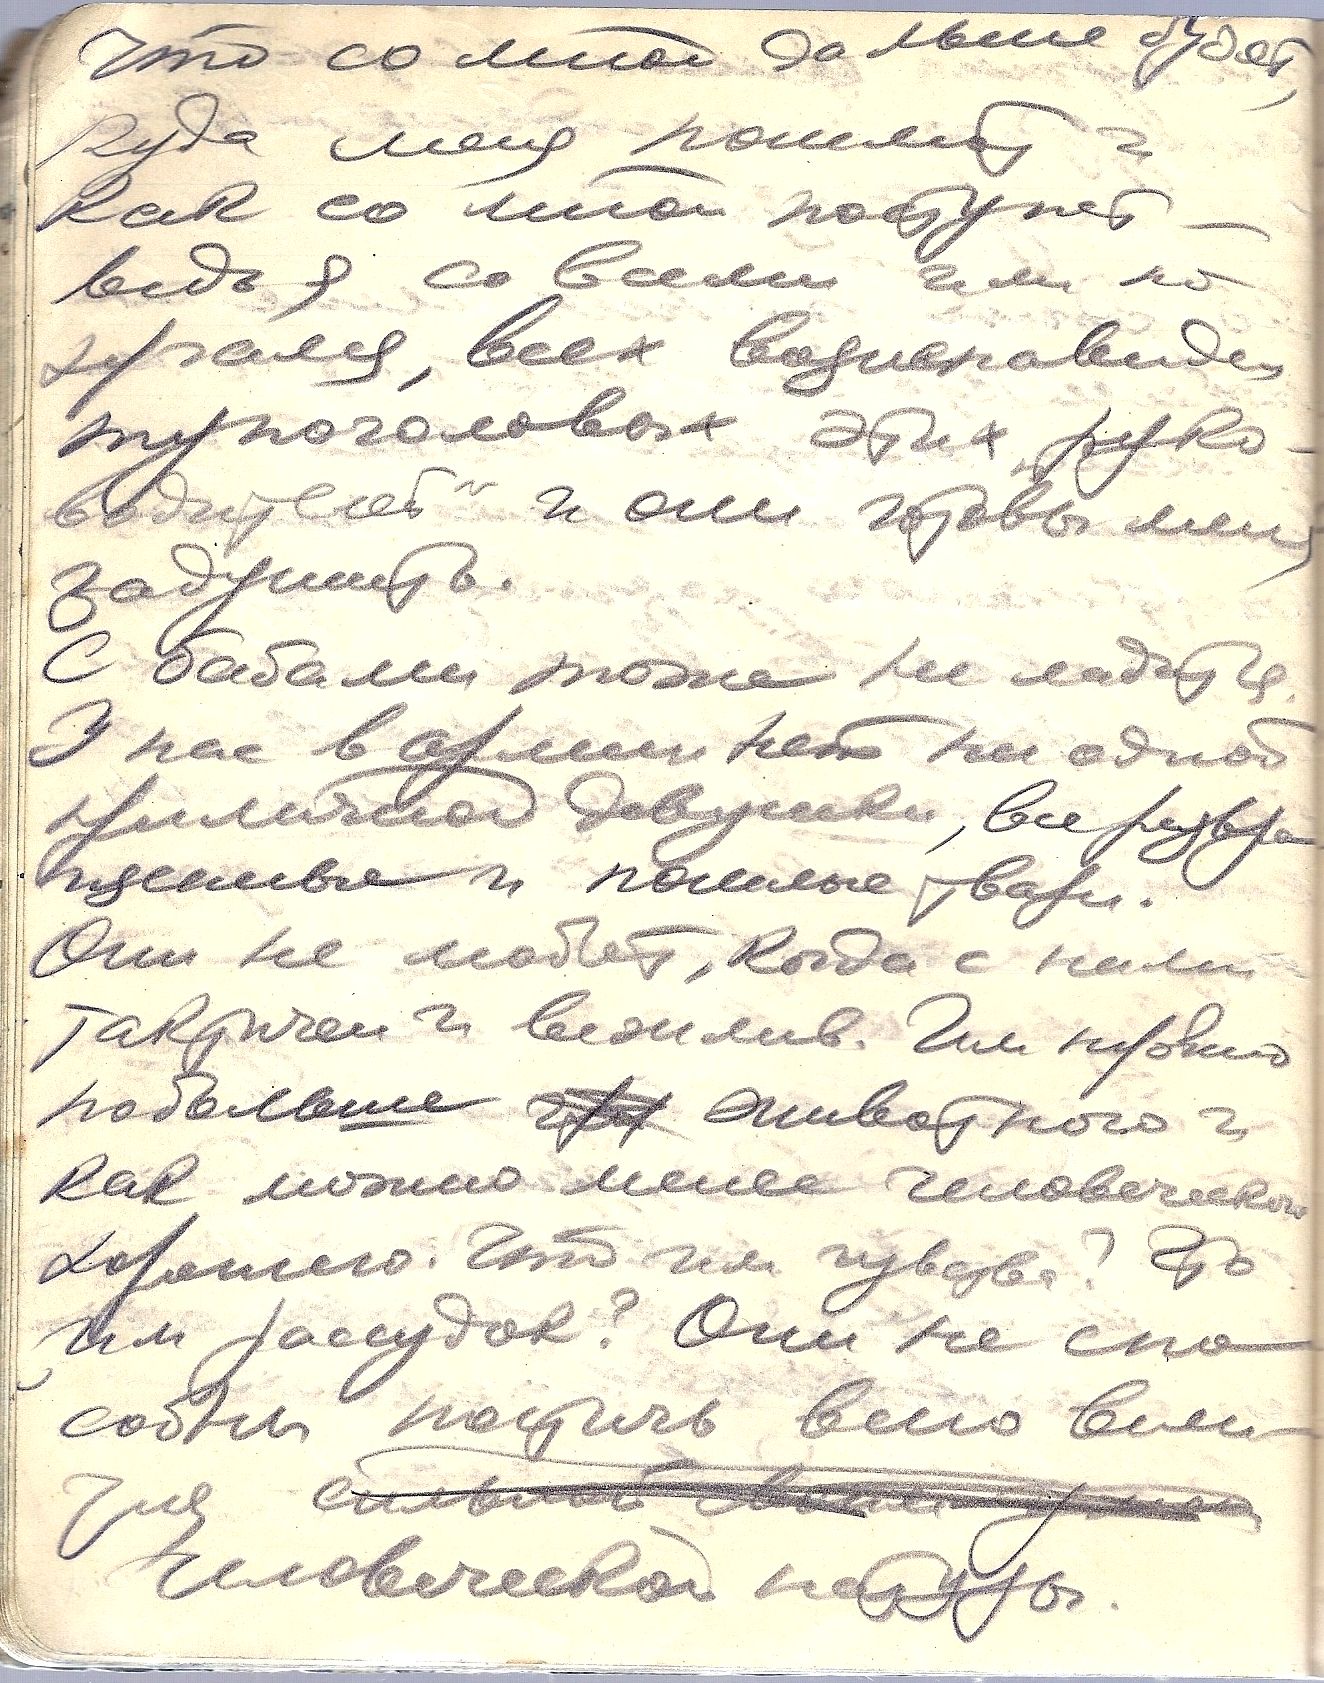 Что со мной дальше будет,
куда меня пошлют и
как со мной поступят —
ведь я со всеми ими по
ругался, всех возненавидел
тупоголовых этих „руко-
водителей" и они готовы меня
задушить.
С бабами тоже не ладится.
У нас в армии нет ни одной
приличной девушки, все развра
щенные и пошлые твари.
Они не любят, когда с ними
тактичен и вежлив. Им нужно
побольше животного и
как можно менее человеческого
хорошего. Что им чувства? Что
им рассудок? Они не спо-
собны постичь всего вели-
чия сильной
человеческой натуры.